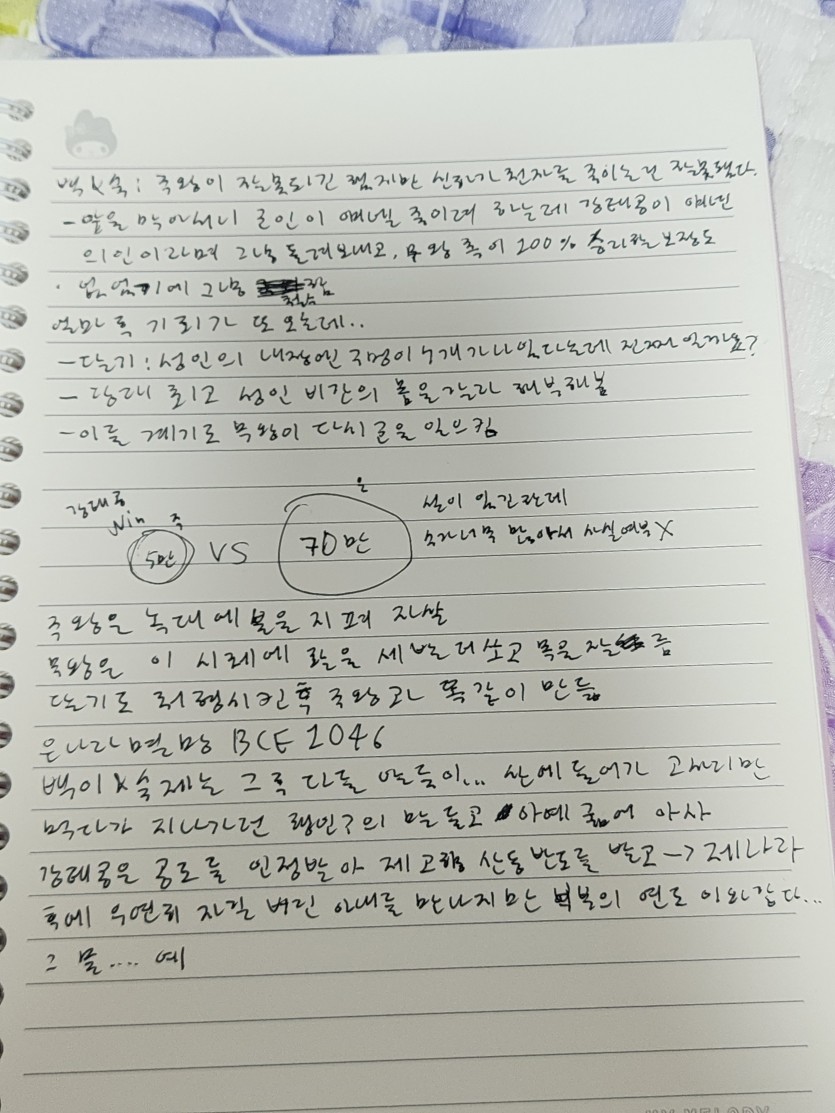 백X숙 : 주왕이 잘못되긴 했지만 신하가 천자를 죽이는건 잘못됐다.
- 앞을 막아서니 군인이 얘네 죽이려 하는데 강태공이 얘넨
의인이라며 그냥 돌려보내고, 무왕 쪽이 100% 승리라는 보장도
없었기에 그냥 철수함
얼마 후 기회가 또 오는데..
- 달기 : 성인의 내장엔 구멍이 7개가 나있다는데 진짜일까요?
- 당대 최고 성인 비간의 몸을 갈라 해부해봄
- 이를 계기로 무왕이 다시 군을 일으킴
강태공
Win 주 은
5만 VS 70만
설이 있긴한데
숫자너무 많아서 사실여부 X
주왕은 녹대에 불을 지펴 자살
무왕은 이 시체에 활을 세발 더 쏘고 목을 자름
달기도 처형시킨 후 주왕과 똑같이 만듦
은나라 멸망 BCE 1046
백이X숙제는 그 후 다들 만들이... 산에 들어가 고사리만
먹다가 지나가던 행인?의 말듣고 아예 굶어 아사
강태공은 공로를 인정받아 제고향 산동반도를 받고 → 제나라
후에 우연히 자길 버린 아내를 만나지만 부부의 연도 이와같다...
그 물.... 예
MY MELODY